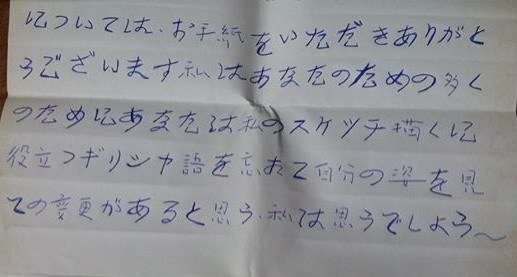 については、お手紙をいただきありがと
うございます私はあなたのための多く
のためにあなたは私のスケッチ描くに
役立つギリシャ語を忘れて自分の姿を見
ての変更があると思う、私は思うでしょう〜